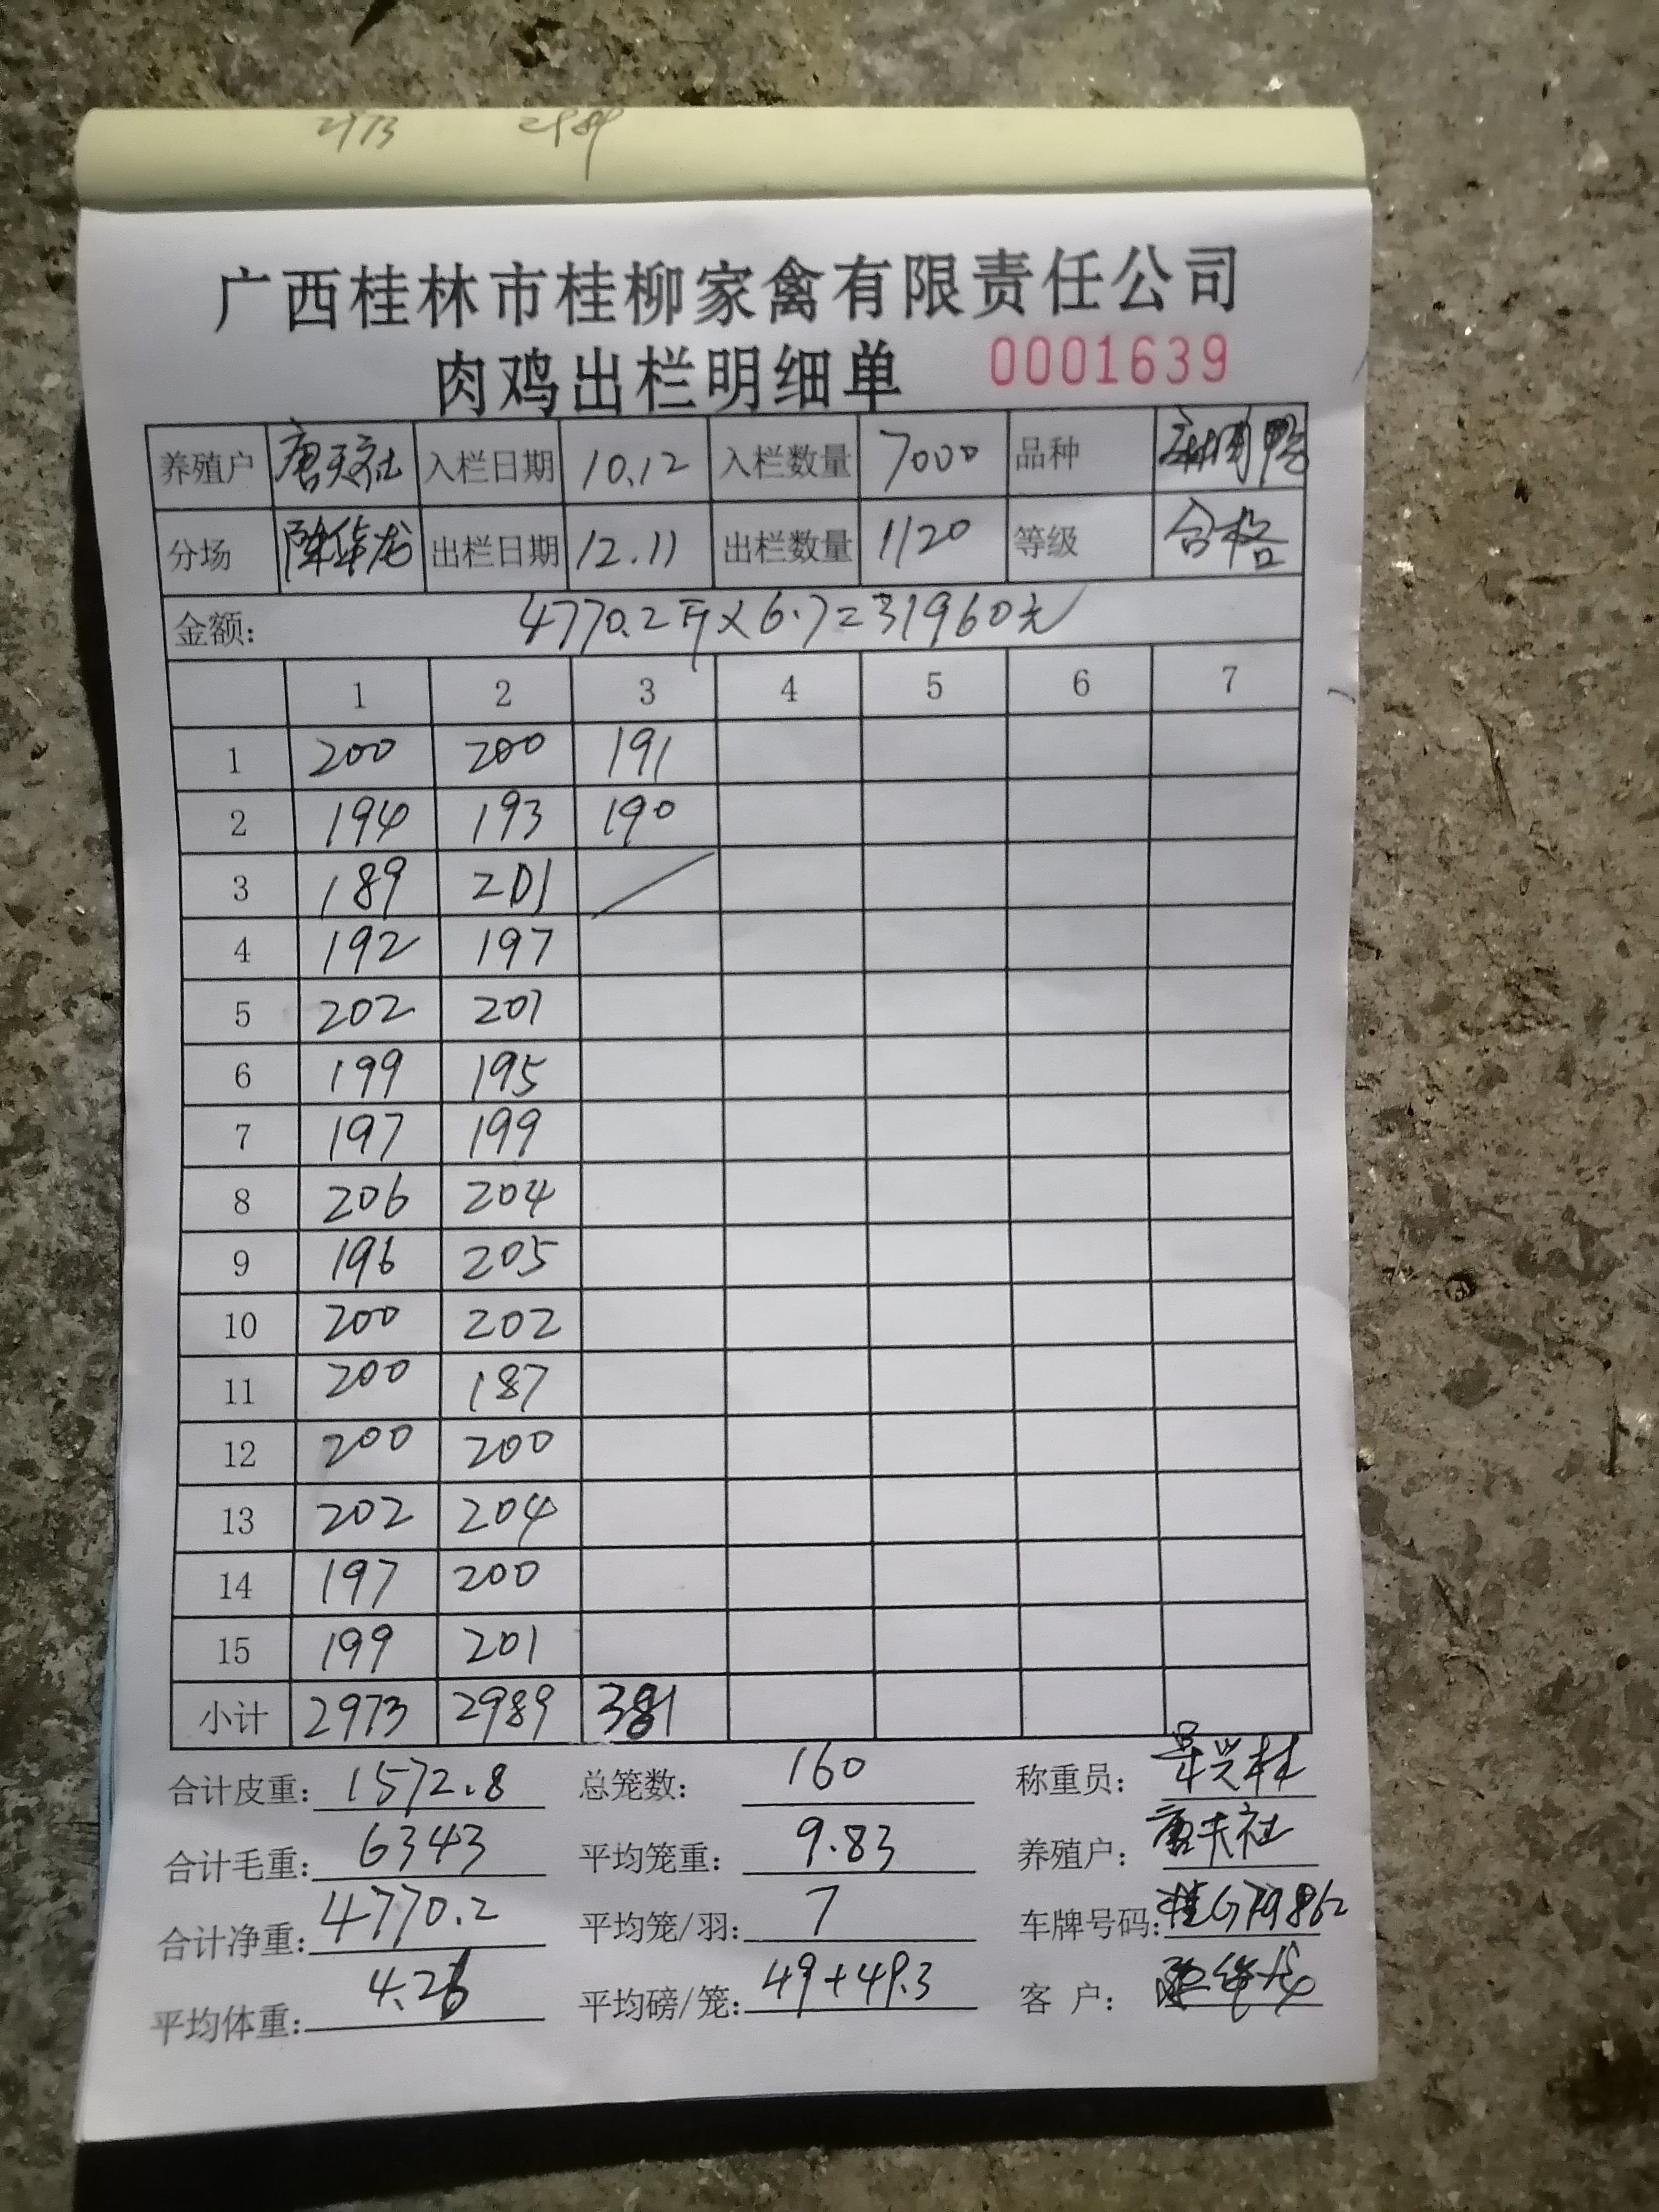 2973 2989
广西桂林市桂柳家禽有限责任公司
肉鸡出栏明细单 0001639
养殖户 唐天社 入栏日期 10.12 入栏数量 7000 品种
分场 陈华龙 出栏日期 12.11 出栏数量 1120 等级 合格
金额: 4770.2斤×6.7=31960元
1 2 3 4 5 6 7
1 200 200 191
2 194 193 190
3 189 201
4 192 197
5 202 201
6 199 195
7 197 199
8 206 204
9 196 205
10 200 202
11 200 187
12 200 200
13 202 204
14 197 200
15 199 201
小计 2973 2989 381
合计皮重: 1572.8 总笼数: 160 称重员:
合计毛重: 6343 平均笼重: 9.83 养殖户: 唐天社
合计净重: 4770.2 平均笼/羽: 7 车牌号码:
平均体重: 4.26 平均磅/笼: 49+49.3 客户: 陈华龙